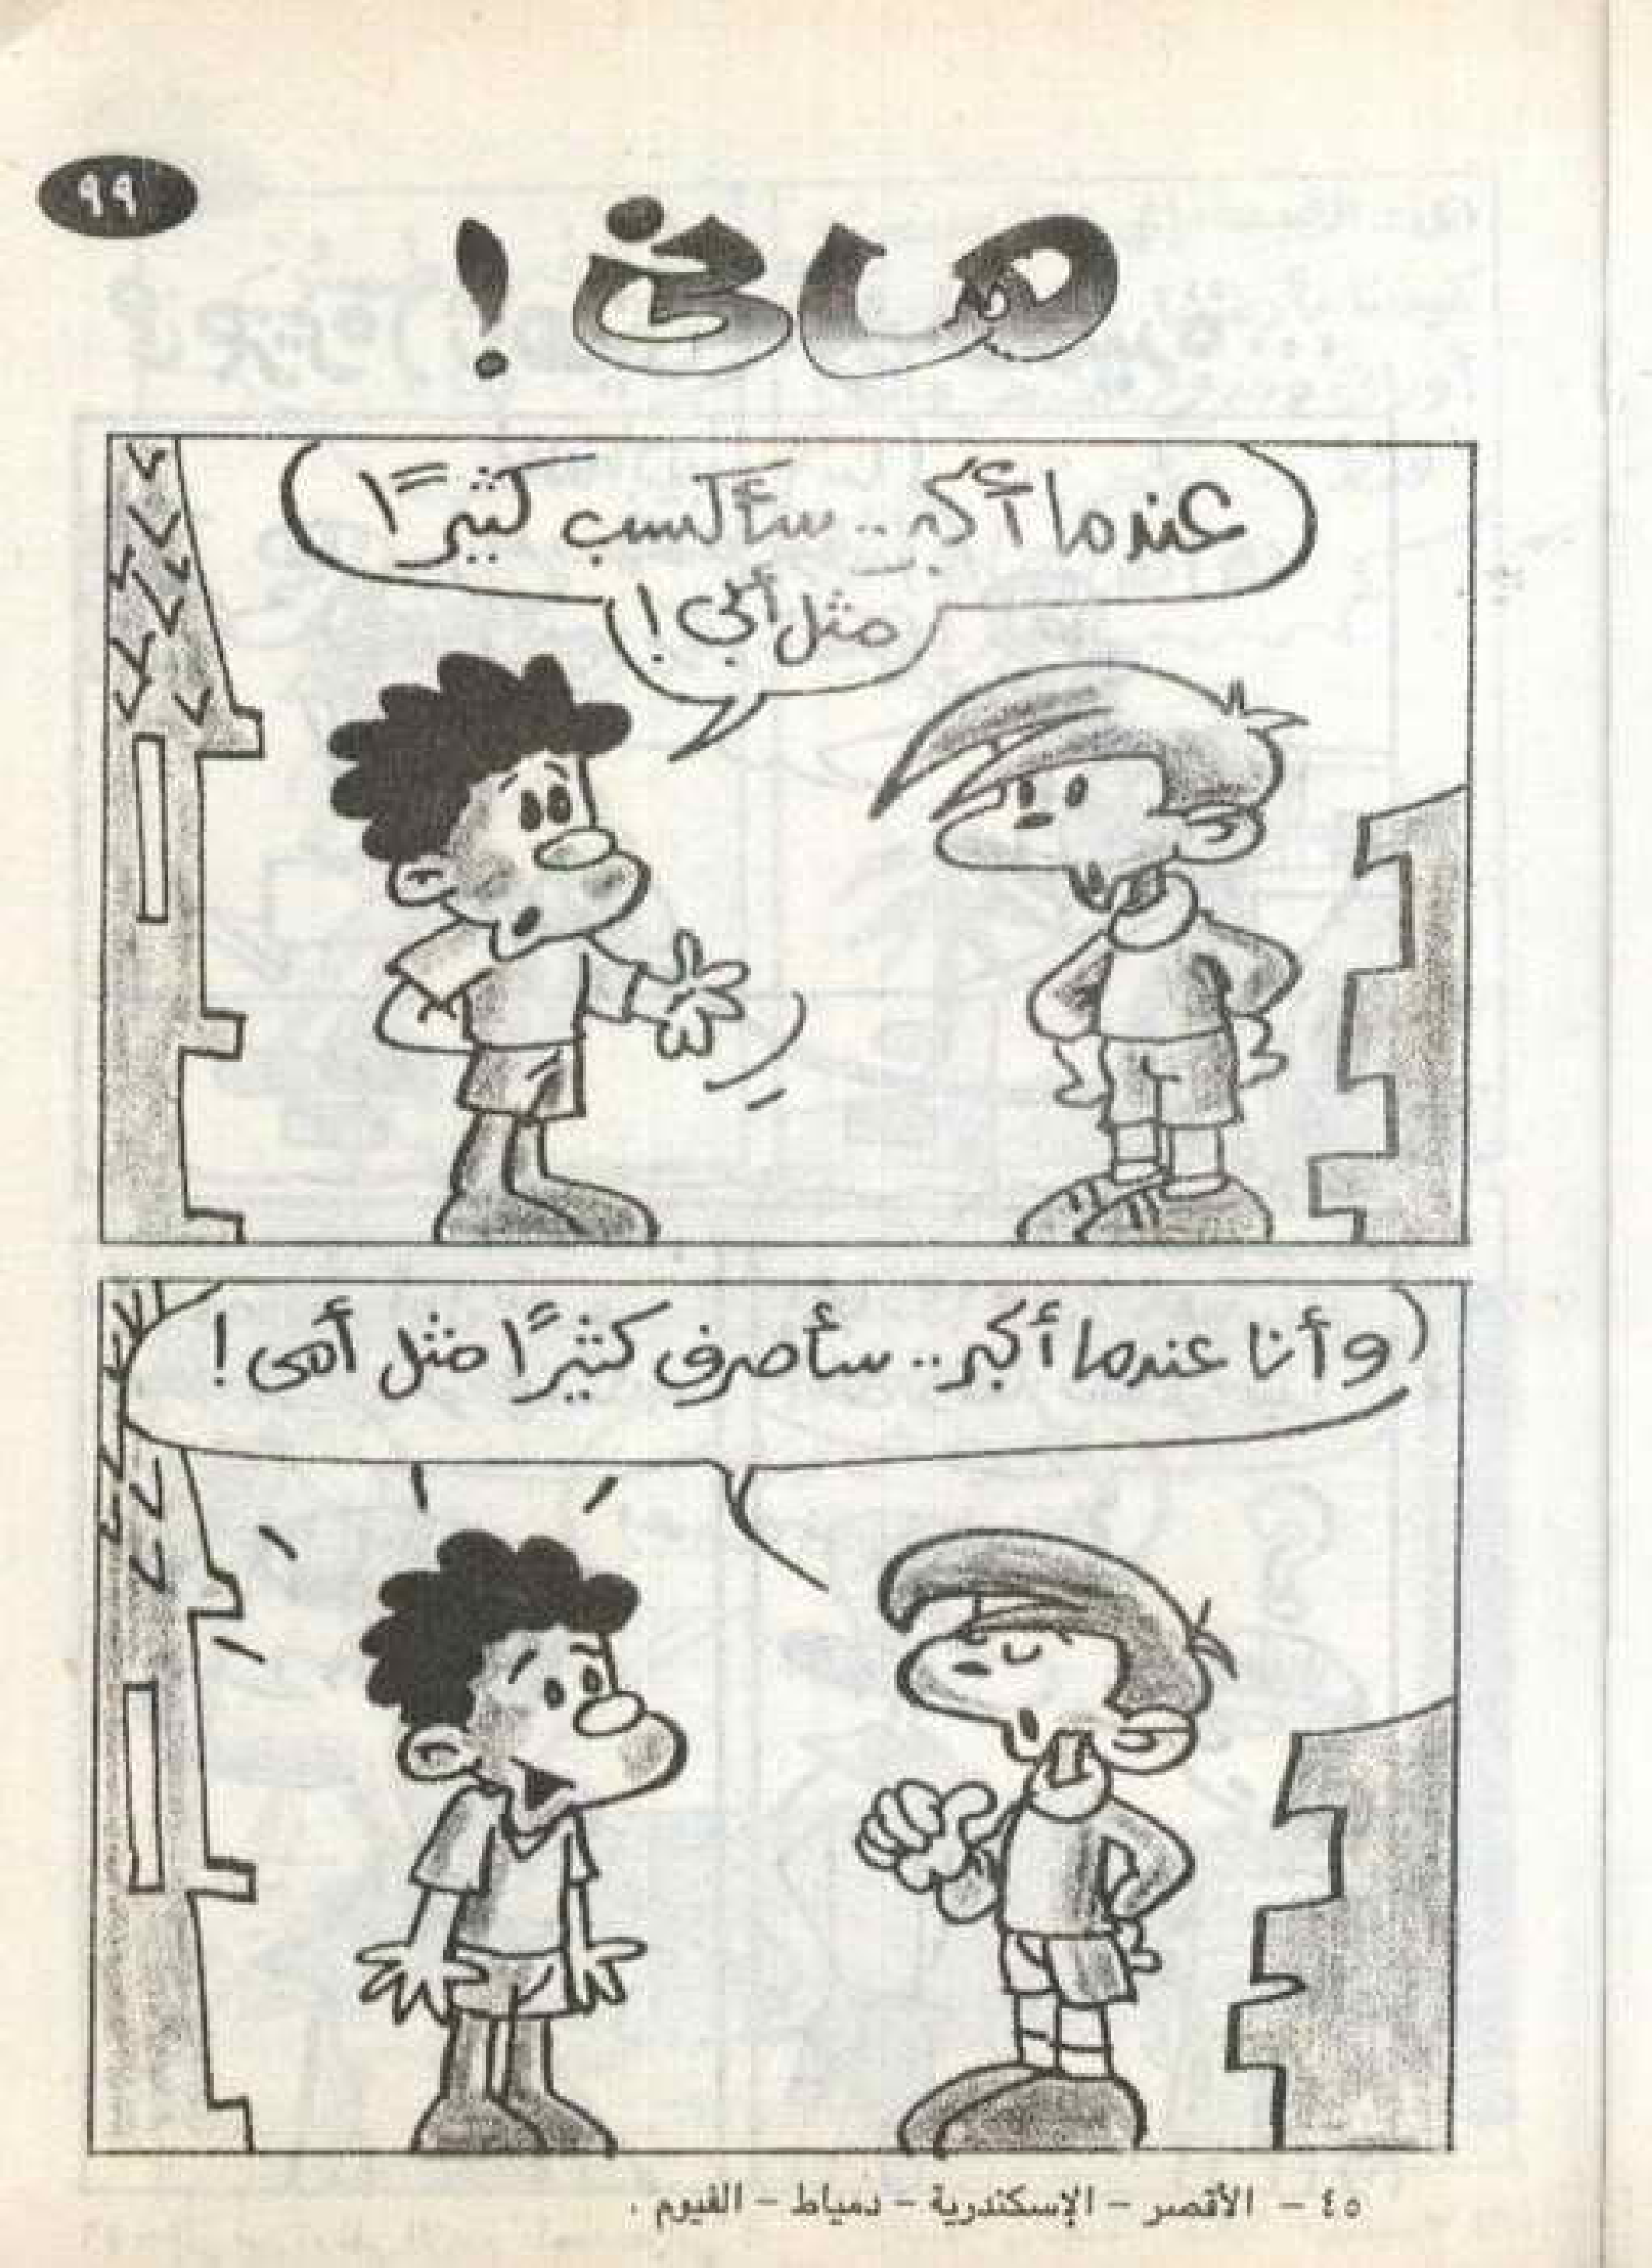 ٩٩
هانى !
عندما أكبر .. سأكسب كثيرًا
مثل أبى !
وأنا عندما أكبر .. سأصرف كثيرًا مثل أمى !
٤٥ - الأقصر - الإسكندرية - دمياط - الفيوم .